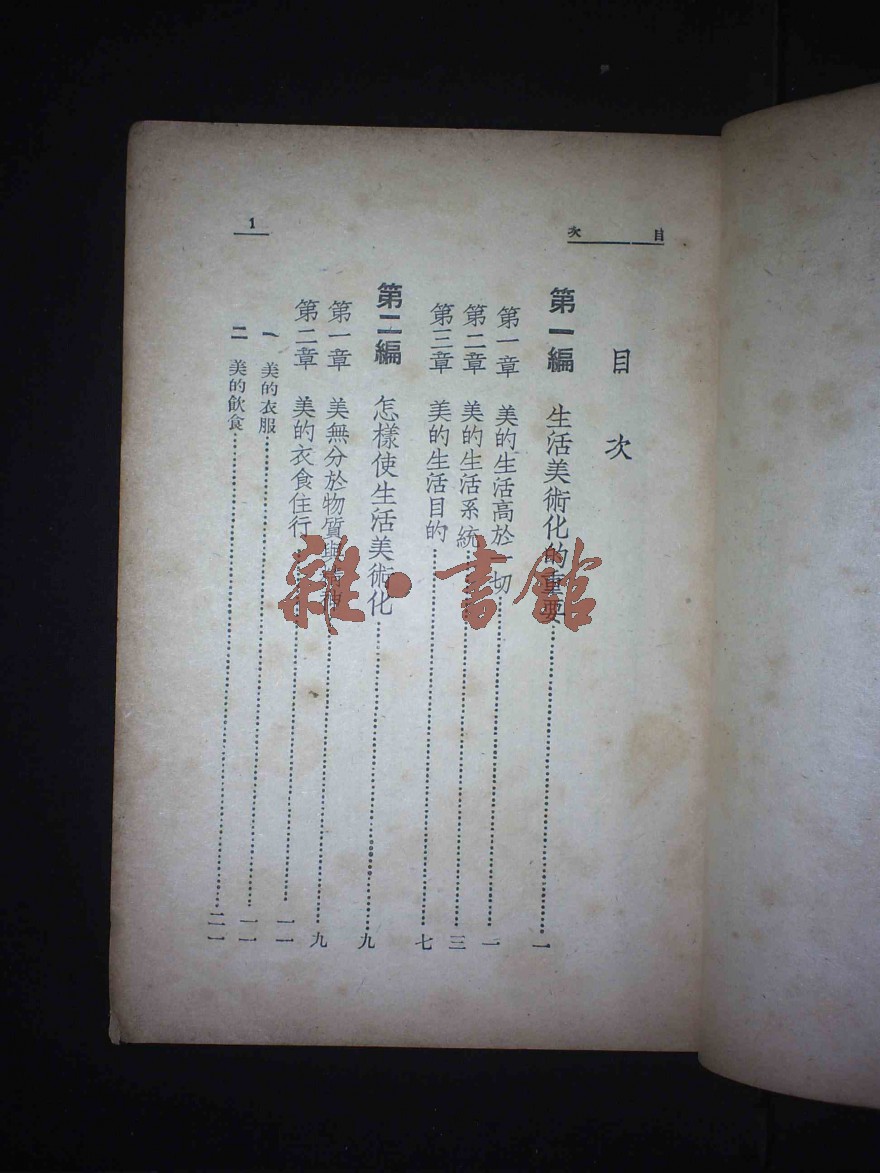 目次
1
目次
第一編 生活美術化的重要……一
第一章 美的生活高於一切……一
第二章 美的生活系統……三
第三章 美的生活目的……七
第二編 怎樣使生活美術化……九
第一章 美無分於物質與精神……九
第二章 美的衣食住行……一一
一 美的衣服……一一
二 美的飲食……二一
雜·書館